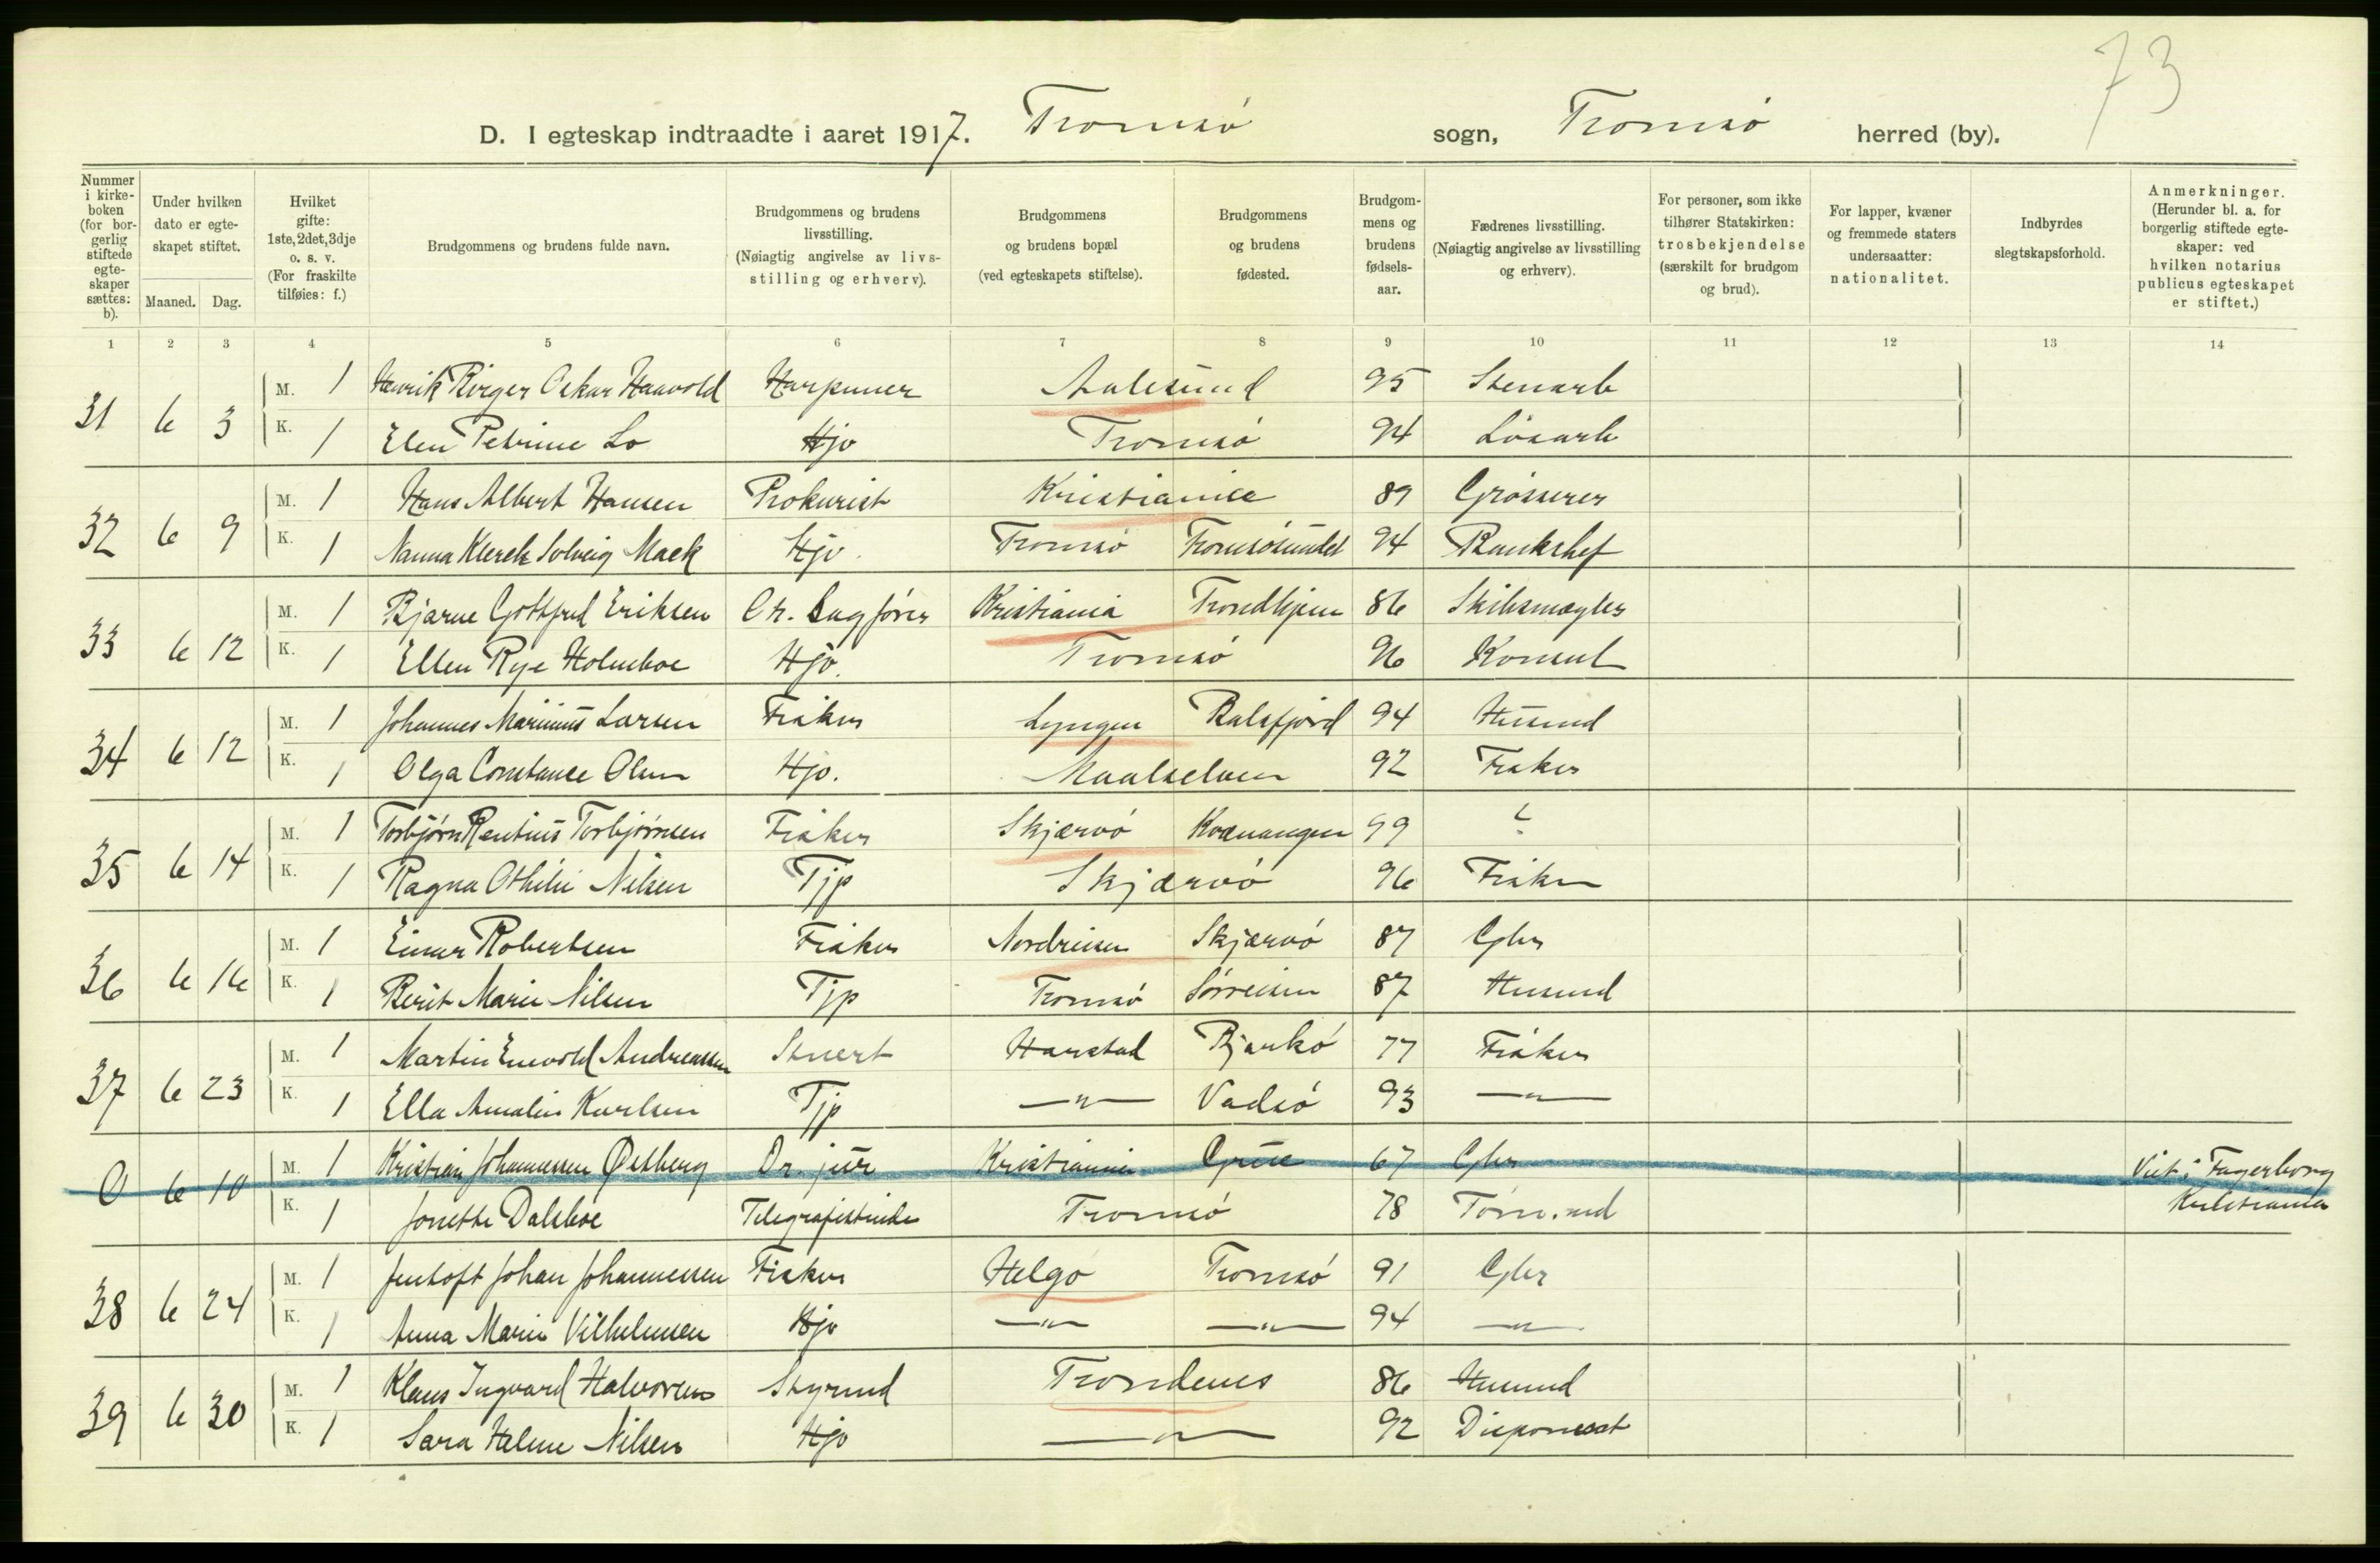 73
D. I egteskap indtraadte i aaret 1917. Tromsø sogn, Tromsø herred (by).
Nummer i kirke- boken (for bor- gerlig stiftede egte- skaper sættes: b).
Under hvilken dato er egte- skapet stiftet.
Maaned. Dag.
Hvilket gifte: 1ste, 2det, 3dje o. s. v. (For fraskilte tilføies: f.)
Brudgommens og brudens fulde navn.
Brudgommens og brudens livsstilling. (Nøiagtig angivelse av livs- stilling og erhverv).
Brudgommens og brudens bopæl (ved egteskapets stiftelse).
Brudgommens og brudens fødested.
Brudgom- mens og brudens fødsels- aar.
Fædrenes livsstilling. (Nøiagtig angivelse av livsstilling og erhverv).
For personer, som ikke tilhører Statskirken: trosbekjendelse (særskilt for brudgom og brud).
For lapper, kvæner og fremmede staters undersaatter: nationalitet.
Indbyrdes slegtskapsforhold.
Anmerkninger. (Herunder bl. a. for borgerlig stiftede egte- skaper: ved hvilken notarius publicus egteskapet er stiftet.)
1 2 3 4 5 6 7 8 9 10 11 12 13 14
31 6 3 M. 1 Henrik Birger Oskar Haavold Harpuner Aalesund 95 Stenarb
K. 1 Elen Petrine Lo Hjv Tromsø 94 Løsarb
32 6 9 M. 1 Hans Albert Hansen Prokurist Kristiania 89 Grosserer
K. 1 Nanna Klerck Solveig Mack Hjv. Tromsø Tromsøsundet 94 Bankchef
33 6 12 M. 1 Bjarne Gottfred Eriksen O.r. Sagfører Kristiania Trondhjem 86 Skibsmægler
K. 1 Ellen Rye Holmboe Hjv. Tromsø 96 Konsul
34 6 12 M. 1 Johannes Marinius Larsen Fisker Lyngen Balsfjord 94 Husmd
K. 1 Olga Constance Olsen Hjv. Maalselven 92 Fisker
35 6 14 M. 1 Torbjørn Rentius Torbjørnsen Fisker Skjærvø Kvænangen 99 ?
K. 1 Ragna Othilie Nilsen Tjp Skjærvø 96 Fisker
36 6 16 M. 1 Einar Robertsen Fisker Nordreisen Skjærvø 87 Gbr
K. 1 Berit Marie Nilsen Tjp Tromsø Sørreisen 87 Husmd
37 6 23 M. 1 Martin Enevold Andreassen Stuert Harstad Bjarkø 77 Fisker
K. 1 Ella Amalie Karlsen Tjp —"— Vadsø 93 —"—
0 6 10 M. 1 Kristian Johannessen Østberg Dr. jur Kristiania Grue 67 Gbr Viet i Fagerborg
K. 1 Jonette Dalsboe Telegrafistinde Tromsø 78 Tømmd Kristiania
38 6 24 M. 1 Jentoft Johan Johannessen Fisker Helgø Tromsø 91 Gbr
K. 1 Anna Marie Vilhelmsen Hjv —"— —"— 94 —"—
39 6 30 M. 1 Klaus Ingvard Halvorsen Styrmd Trondenes 86 Husmd
K. 1 Sara Helene Nilsen Hjv —"— 92 Disponent